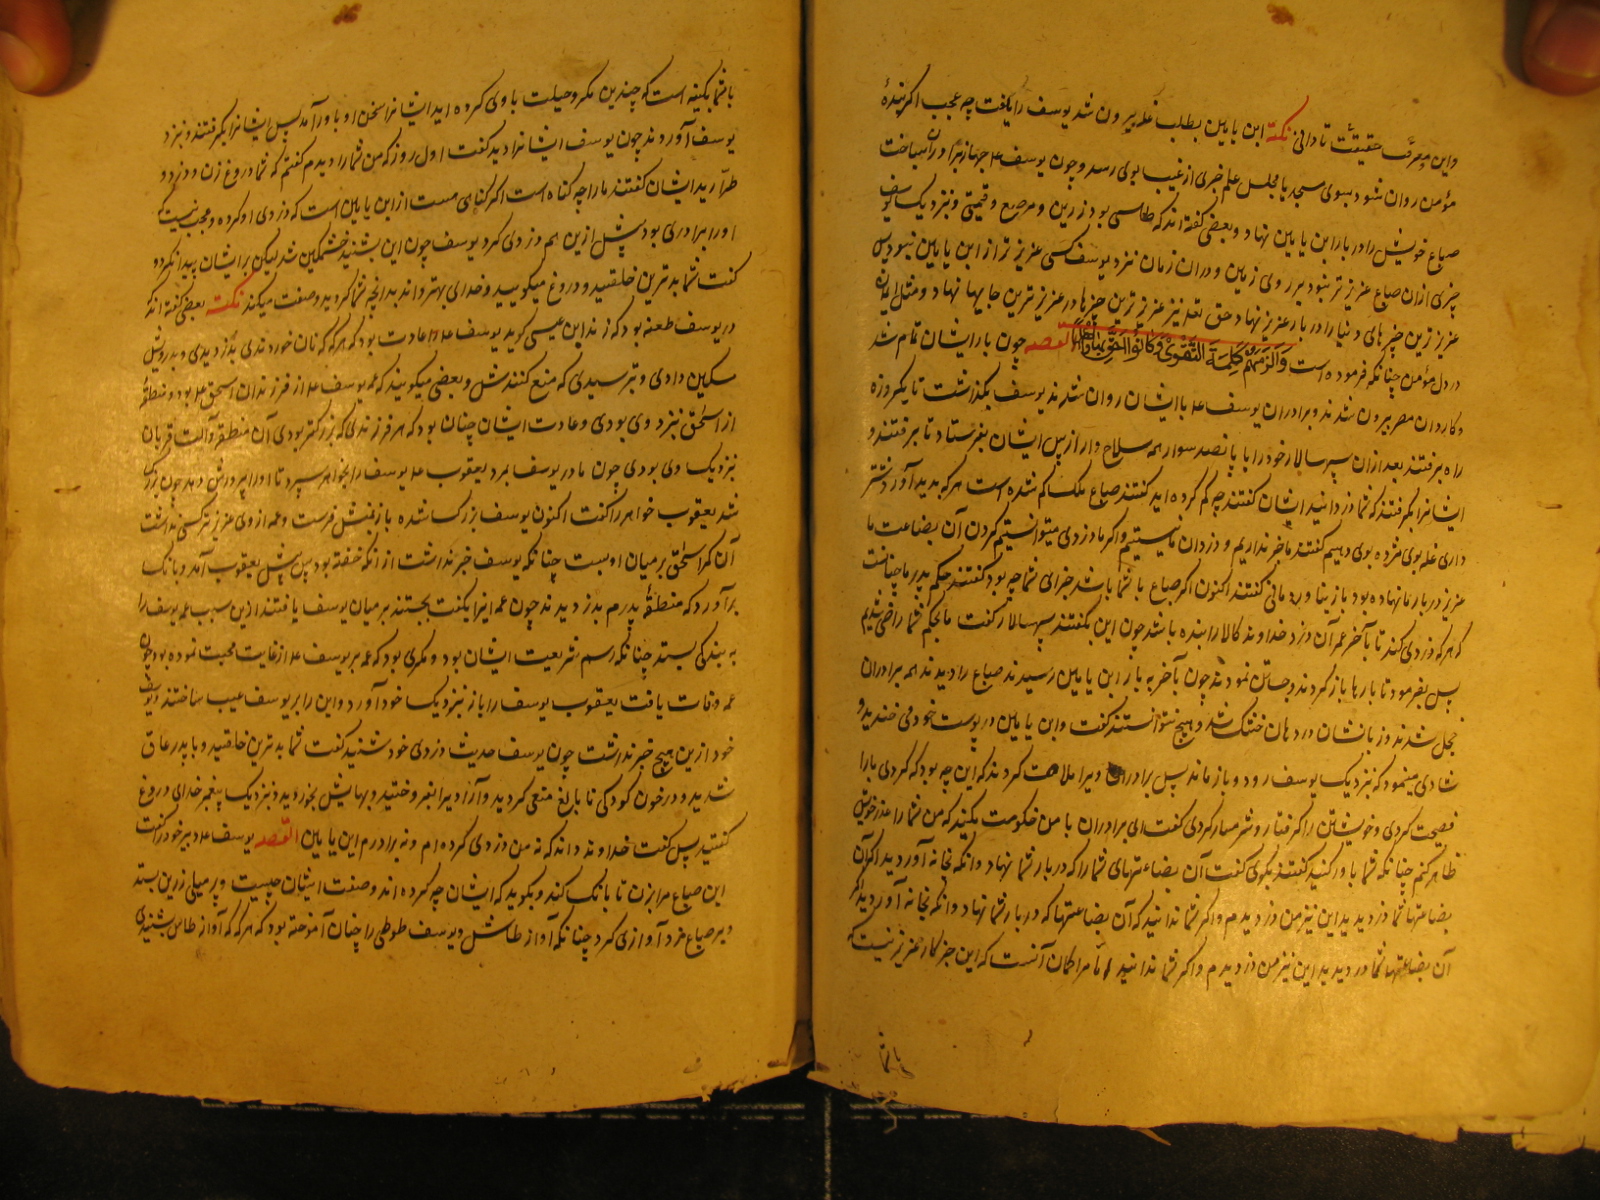 واین معرفت حقیقت تا دانی نکته ابن یامین بطلب غله بیرون شد یوسف را یافت چه عجب اکر بندهٔ
مؤمن روان شود بسوی مسجد یا مجلس علم خبری از غیب بوی رسد و چون یوسف ع م جهاز برادران ساخت
صباع خویش را در بار ابن یامین نهاد و بعضی کفته اند که طاسی بود زرین و مرصع و قیمتی و نزدیک یوسف
چیزی ازان صباع عزیزتر نبود بر روی زمین و دران زمان نزد یوسف کسی عزیزتر از ابن یامین نبود پس
عزیزترین چیزهای دنیا را در بار عزیز نهاد حق تعه نیز عزیزترین چیزها در عزیزترین جایها نهاد و مثل ایمان
در دل مؤمن چنانکه فرموده است والزمهم کلمة التقوی وکانوا احق بها واهلها القصه چون بار ایشان تمام شد
وکاردان مصر بیرون شدند و برادران یوسف ع م با ایشان روان شدند یوسف بکذاشت تا یکروزه
راه برفتند بعد ازان سپه سالار خود را با پانصد سوار همه سلاح دار از پس ایشان بفرستاد تا برفتند و
ایشانرا بکرفتند که شما دزدانید ایشان کفتند چه کم کرده اید کفتند صباع ملک کم شده است هرکه پدید آورد شتر
داری غله بوی مژده بوی دهیم کفتند ما خبر نداریم و دزدان نیستیم و اکر ما دزدی میتوانستیم کردن آن بضاعت ما
عزیز در بار ما نهاده بود باز بنا وردمانی کفتند اکنون اکر صباع با شما باشد جزای شما چه بود کفتند حکم پدر ما چنانست
که هرکه دزدی کند تا آخر عمر آن دزد خداوند کالا را بنده باشد چون این بکفتند سپهسالار کفت ما بحکم شما راضی شدیم
پس بفرمود تا بارها باز کردند و جستن نمودند چون بآخر به بار ابن یامین رسیدند صباع را دیدند همه برادران
خجل شدند و زبانشان در دهان خشک شد و هیچ نتوانستند کفت وابن یامین در پوست خود می خندید و
شادی مینمود که نزدیک یوسف رود و باز ماند پس برادران ویرا ملامت کردند که این چه بود که کردی ما را
فضیحت کردی و خویشتن را کرفتار و شرمسار کردی کفت ای برادران با من حکومت مکنید که من شما را عذر خویش
ظاهر کنم چنانکه شما باور کنید کفتند بکوی کفت آن بضاعتهای شما را که در بار شما نهاد و آنکه بخانه آوردید اکر آن
بضاعتها شما دزدیدید این نیز من دزدیدم و اکر شما ندانید که آن بضاعتها که در بار شما نهاد و آنکه بخانه آوردید اکر
آن بضاعتها شما دزدیدید این نیز من دزدیدم و اکر شما ندانید اما مرا کمان آنست که این جز کار عزیز نیست که
با شما
با شما بکینه است که چندین مکر و حیلت با وی کرده اید ایشانرا سخن او باور آمد پس ایشانرا بکرفتند و نزد
یوسف آوردند چون یوسف ایشانرا دید کفت اول روز که من شما را دیدم کفتم که شما دروغ زن و دزد و
طرارید ایشان کفتند ما را چه کناه است اکر کناهی هست از ابن یامین است که دزدی او کرده و عجب نیست که
او را برادری بود پیش ازین هم دزدی کرد یوسف چون این بشنید خشمکین شد لیکن بر ایشان پیدا نکرد و
کفت شما بدترین خلقید و دروغ میکویید و خدای بهتر داند بدانچه شما کردید و صفت میکند نکته بعضی کفته اند که
در یوسف طعنه بود که زند ابن عیسی کوید یوسف ع م را عادت بود که هرکه که نان خوردندی بدزدیدی و بدرویش
مسکین دادی و بترسیدی که منع کنندش و بعضی میکویند که عمه یوسف ع م از فرزندان اسحق ع م بود و منطقهٔ
از اسحق نزد وی بودی و عادت ایشان چنان بود که هر فرزندی که بزرکتر بودی آن منطقه و آلت قربان
نزدیک وی بودی چون مادر یوسف بمرد یعقوب ع م یوسف را بخواهر سپرد تا او را پرورش دهد چون بزرک
شد یعقوب خواهر را کفت اکنون یوسف بزرک شده باز منش فرست و عمه از وی عزیزتر کسی نداشت
آن کمر اسحق بر میان او بست چنانکه یوسف خبر نداشت از آنکه خفته بود پس پیش یعقوب آمد و بانک
برآورد که منطقهٔ پدرم بدزدیدند چون عمه اینرا بکفت بجستند بر میان یوسف یافتند ازین سبب عمه یوسف را
به بندکی بستد چنانکه رسم شریعت ایشان بود و مکری بود که عمه بر یوسف ع م از غایت محبت نموده بود چون
عمه وفات یافت یعقوب یوسف را باز نزدیک خود آورد و این را بر یوسف عیب ساختند و یوسف
خود ازین هیچ خبر نداشت چون یوسف حدیث دزدی خود شنید کفت شما بدترین خلقید و با پدر عاق
شدید و در خون کودکی نا بالغ سعی کردید و آزاد ایرا بفروختید و بهایش بخوردید و نزدیک پیغمبر خدای دروغ
کفتید پس کفت خداوند داند که نه من دزدی کرده ام و نه برادرم ابن یامین القصه یوسف ع م دبیر خود را کفت
این صباع مرا بزن تا بانک کند و بکوید که ایشان چه کرده اند و صفت ایشان چیست و پر میلی زرین بستد
دبیر صباع مزد آوازی کرد چنانکه آواز طاسش و یوسف طوطی را چنان آموخته بود که هرکه که آواز طاس بشنیدی